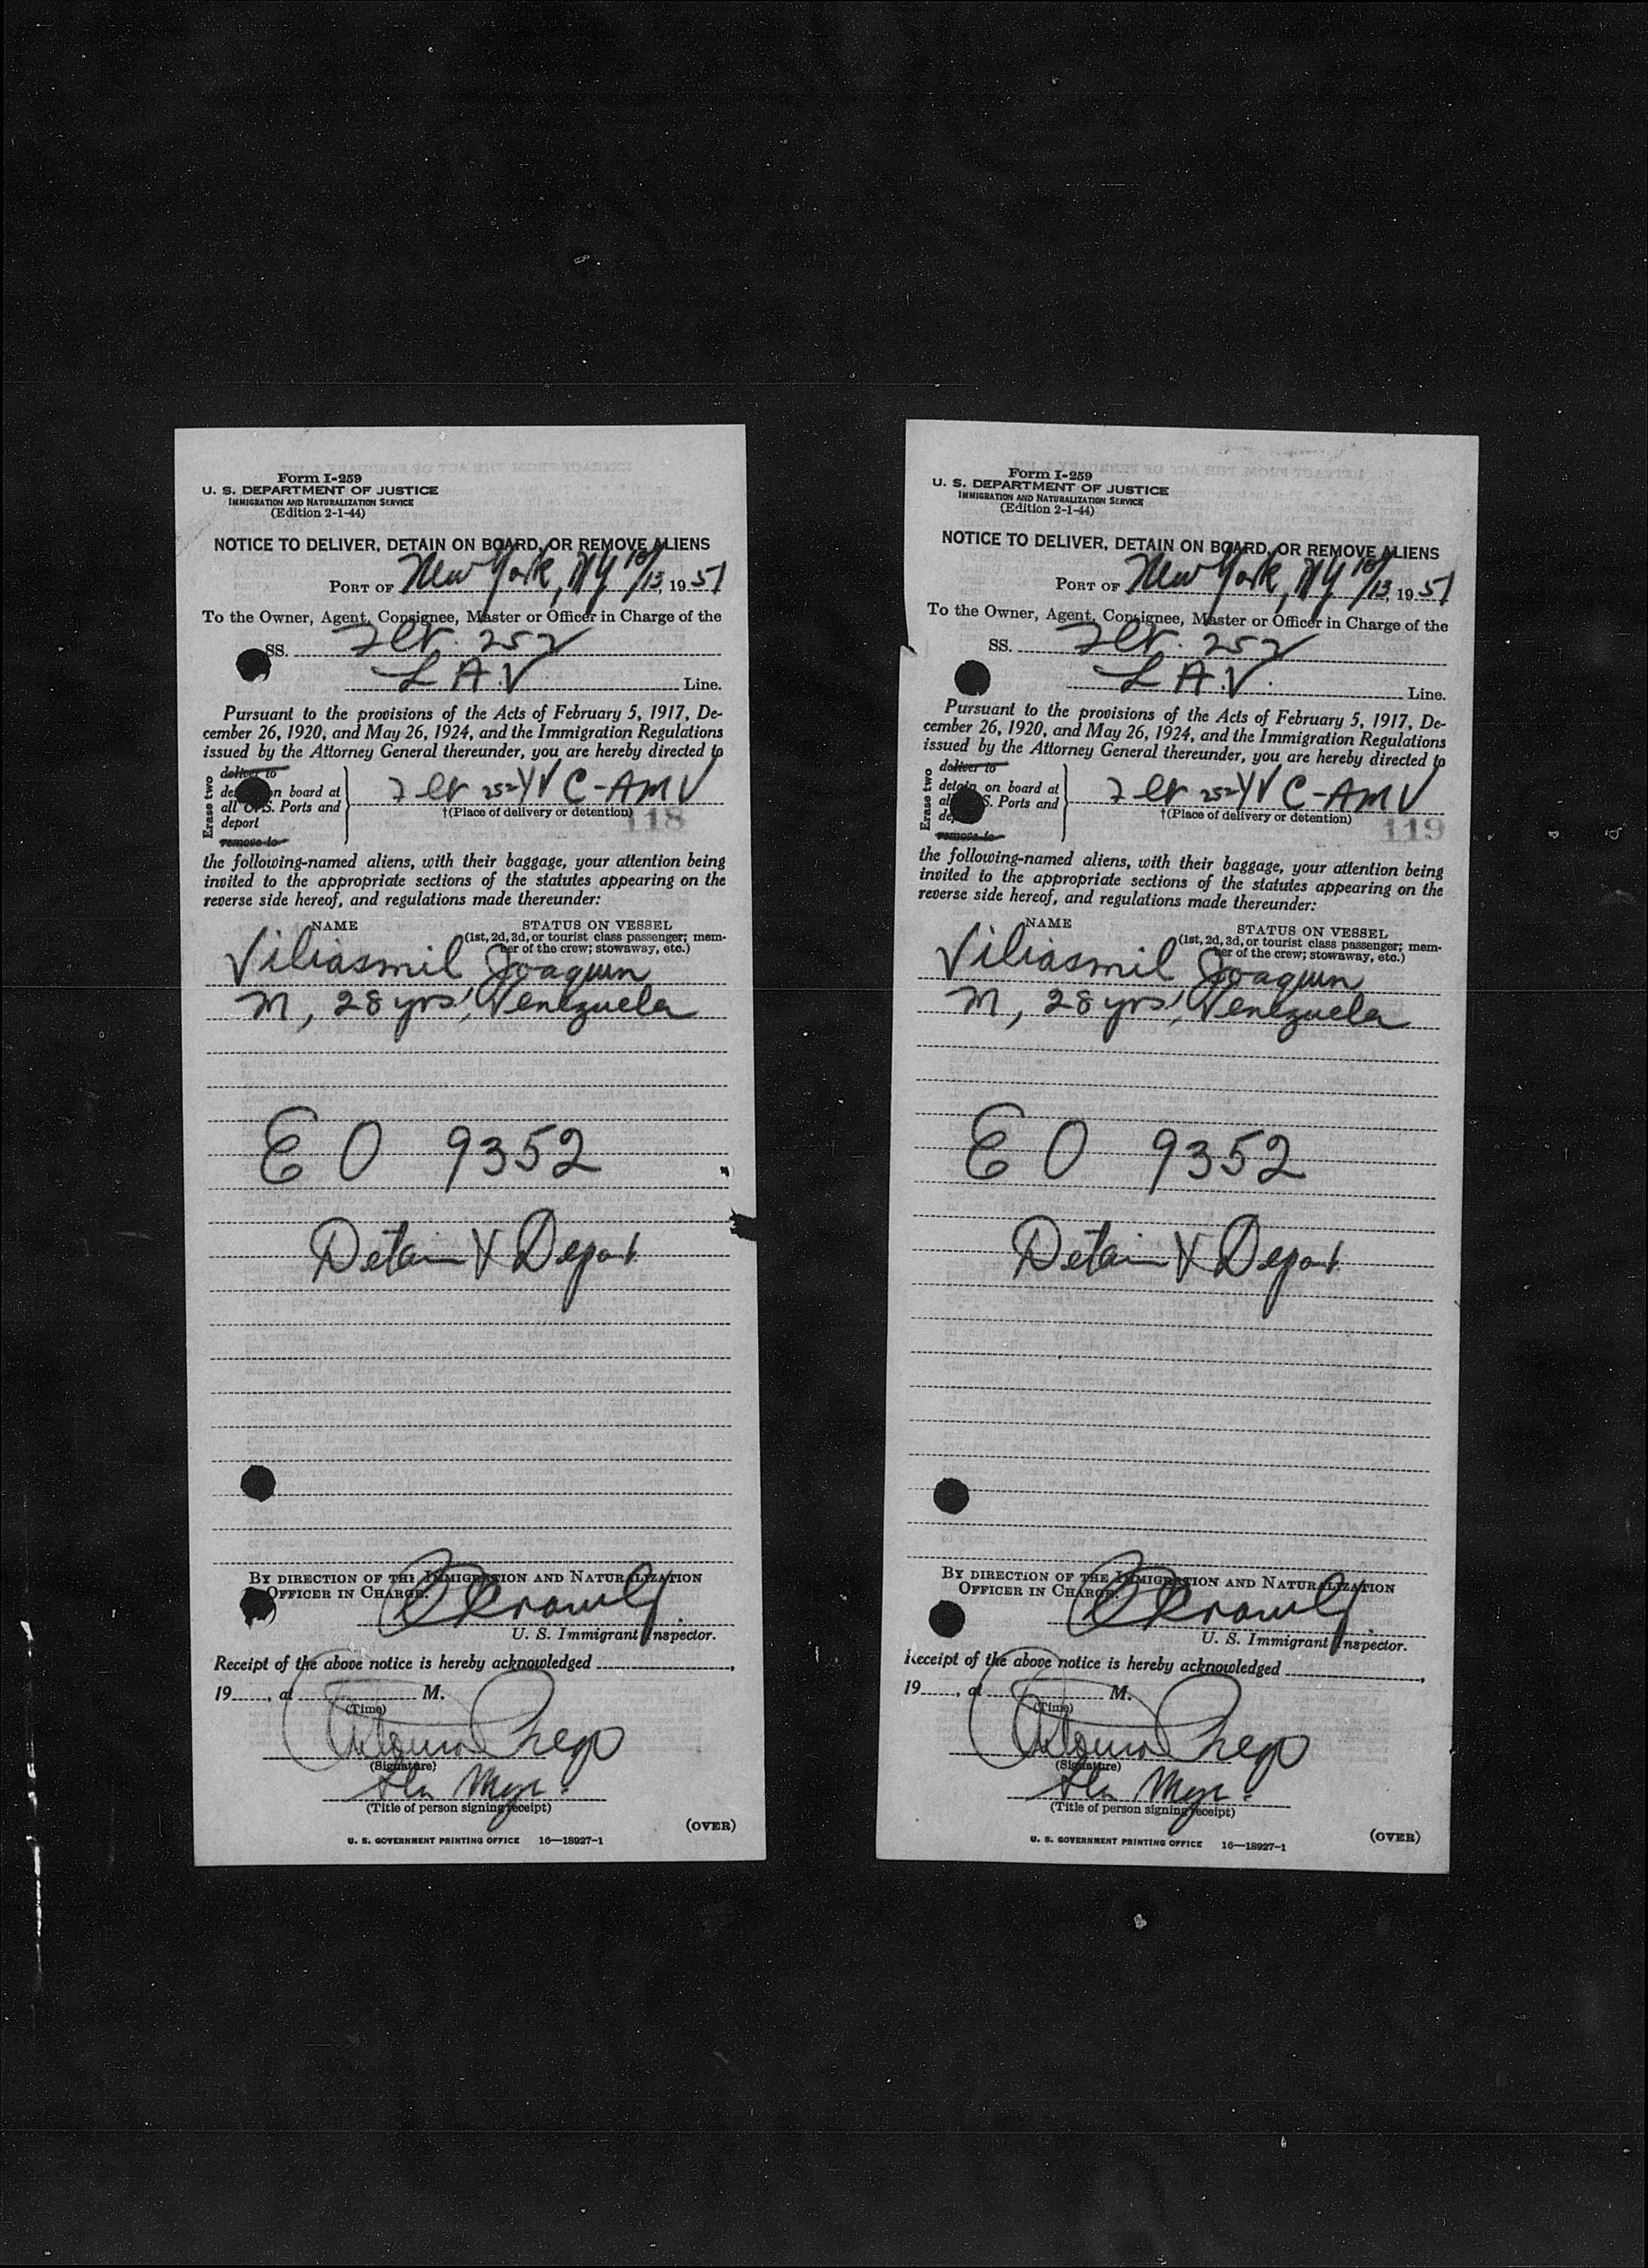 Form I-259
U. S. DEPARTMENT OF JUSTICE
IMMIGRATION AND NATURALIZATION SERVICE
(Edition 2-1-44)
NOTICE TO DELIVER, DETAIN ON BOARD, OR REMOVE ALIENS
PORT OF New York, NY 10/13, 1951
To the Owner, Agent, Consignee, Master or Officer in Charge of the
SS. 252
L A V Line.
Pursuant to the provisions of the Acts of February 5, 1917, De-
cember 26, 1920, and May 26, 1924, and the Immigration Regulations
issued by the Attorney General thereunder, you are hereby directed to
Erase two
deliver to
on board at
all S. Ports and
deport
remove to
252 YV C-AMV
†(Place of delivery or detention)
118
the following-named aliens, with their baggage, your attention being
invited to the appropriate sections of the statutes appearing on the
reverse side hereof, and regulations made thereunder:
NAME STATUS ON VESSEL
(1st, 2d, 3d, or tourist class passenger; mem-
ber of the crew; stowaway, etc.)
Viliasmil Joaquin
M, 28 yrs, Venezuela
E O 9352
Detain & Deport
BY DIRECTION OF THE IMMIGRATION AND NATURALIZATION
OFFICER IN CHARGE.
U. S. Immigrant Inspector.
Receipt of the above notice is hereby acknowledged ,
19 , at M.
(Time)
(Signature)
Sta Mgr.
(Title of person signing receipt)
(OVER)
U. S. GOVERNMENT PRINTING OFFICE 16—18927-1
Form I-259
U. S. DEPARTMENT OF JUSTICE
IMMIGRATION AND NATURALIZATION SERVICE
(Edition 2-1-44)
NOTICE TO DELIVER, DETAIN ON BOARD, OR REMOVE ALIENS
PORT OF New York, NY 10/13, 1951
To the Owner, Agent, Consignee, Master or Officer in Charge of the
SS. 252
L A V. Line.
Pursuant to the provisions of the Acts of February 5, 1917, De-
cember 26, 1920, and May 26, 1924, and the Immigration Regulations
issued by the Attorney General thereunder, you are hereby directed to
Erase two
deliver to
detain on board at
S. Ports and
remove to
252 YV C-AMV
†(Place of delivery or detention)
119
the following-named aliens, with their baggage, your attention being
invited to the appropriate sections of the statutes appearing on the
reverse side hereof, and regulations made thereunder:
NAME STATUS ON VESSEL
(1st, 2d, 3d, or tourist class passenger; mem-
ber of the crew; stowaway, etc.)
Viliasmil Joaquin
M, 28 yrs, Venezuela
E O 9352
Detain & Deport
BY DIRECTION OF THE IMMIGRATION AND NATURALIZATION
OFFICER IN CHARGE.
U. S. Immigrant Inspector.
Receipt of the above notice is hereby acknowledged ,
19 , at M.
(Time)
(Signature)
Sta Mgr.
(Title of person signing receipt)
(OVER)
U. S. GOVERNMENT PRINTING OFFICE 16—18927-1